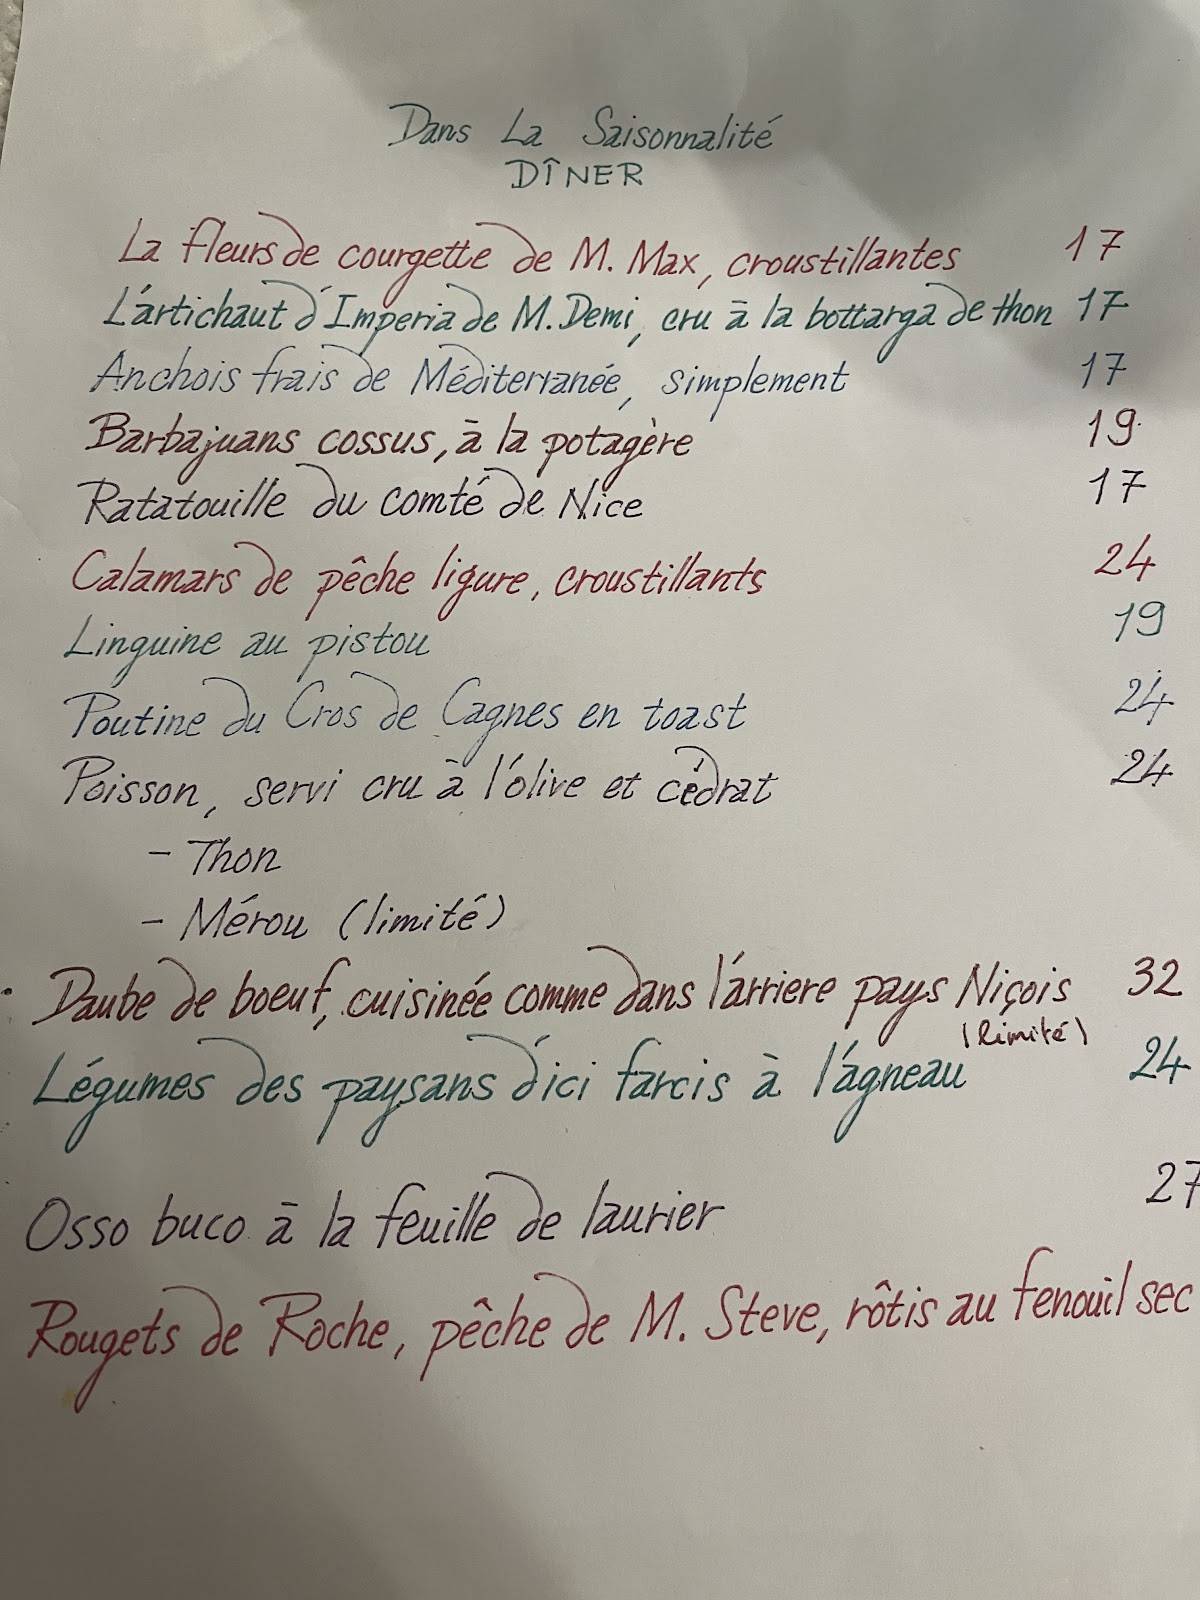 Dans La Saisonnalité
DÎNER
La fleurs de courgette de M. Max, croustillantes 17
L'artichaut d'Imperia de M. Demi, cru à la bottarga de thon 17
Anchois frais de Méditerranée, simplement 17
Barbajuans cossus, à la potagère 19
Ratatouille du comté de Nice 17
Calamars de pêche ligure, croustillants 24
Linguine au pistou 19
Poutine du Cros de Cagnes en toast 24
Poisson, servi cru à l'olive et cédrat 24
- Thon
- Mérou (limité)
Daube de boeuf, cuisinée comme dans l'arriere pays Niçois 32
(limité)
Légumes des paysans d'ici farcis à l'agneau 24
Osso buco à la feuille de laurier 27
Rougets de Roche, pêche de M. Steve, rôtis au fenouil sec